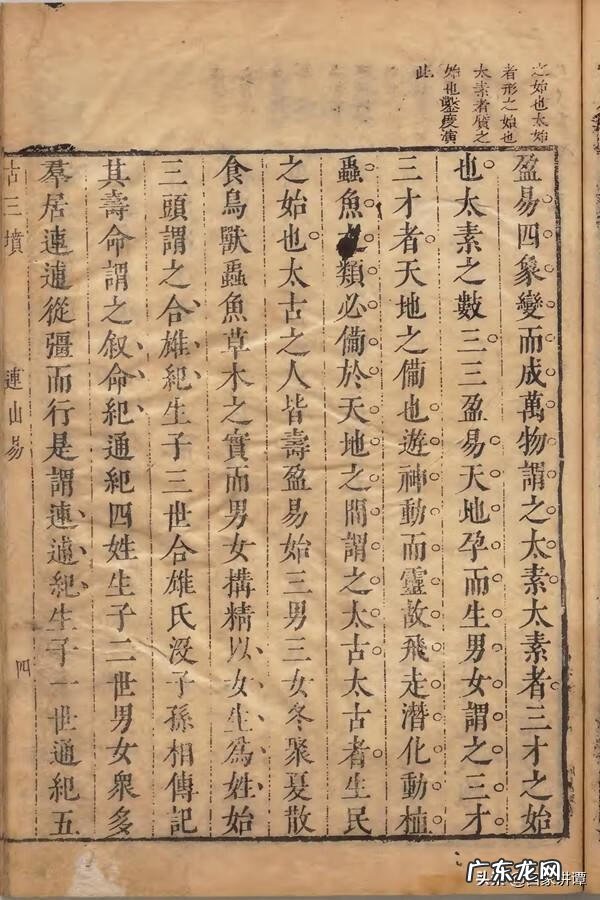 之始也太始
者形之始也
太素者質之
始也鑿度演
此
盈易四象變而成萬物謂之太素太素者三才之始
也太素之數三三盈易天地孕而生男女謂之三才
三才者天地之備也遊神動而靈故飛走潛化動植
蟲魚類必備於天地之間謂之太古太古者生民
之始也太古之人皆壽盈易始三男三女冬聚夏散
食鳥獸蟲魚草木之實而男女搆精以女生為姓始
三頭謂之合雄紀生子三世合雄氏沒子孫相傳記
其壽命謂之叙命紀通紀四姓生子二世男女衆多
羣居連逋從彊而行是謂連逋紀生子一世通紀五
古三墳 連山易 四
广东龙网